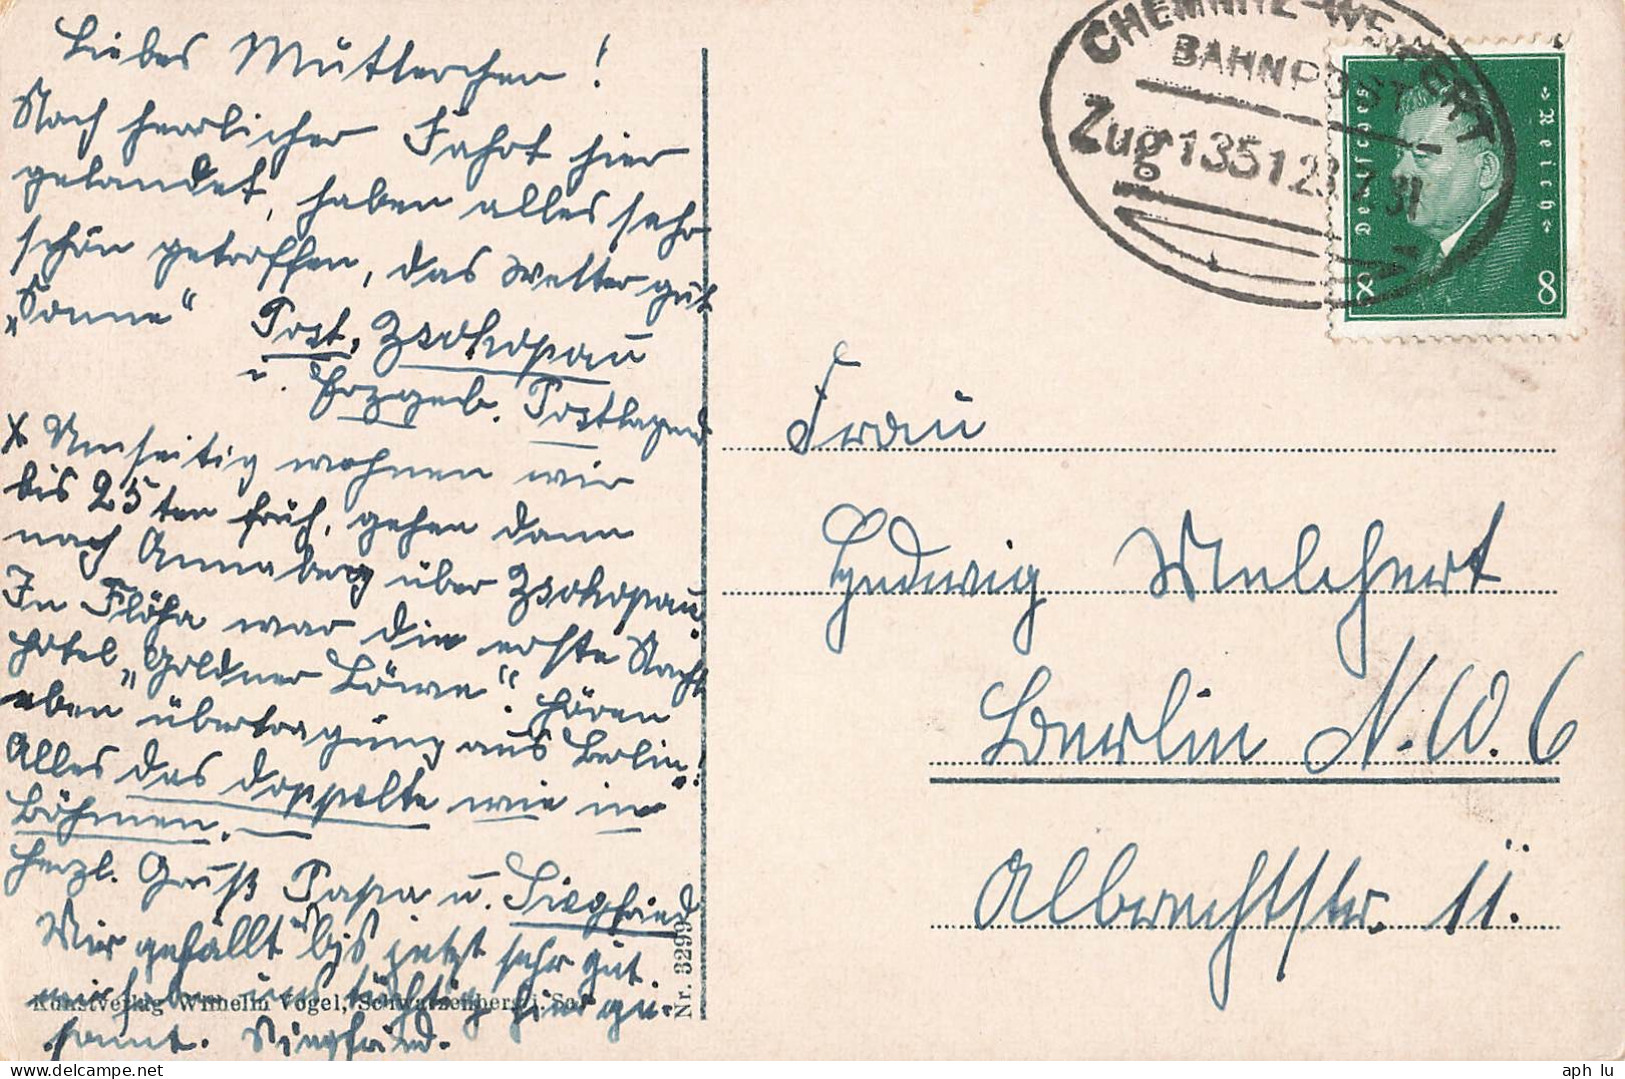 Liebes Mütterchen!
Nach herrlicher Fahrt hier
gelandet, haben alles sehr
schön getroffen, das Wetter gut
„Sonne“ Post, Zschopau
i. Erzgeb. Postlagernd
X Umseitig wohnen wir
bis 25ten früh, gehen dann
nach Annaberg über Zschopau.
In Flöha war die erste Nacht
Hotel „Goldner Löwe“. Hören
eben übertragung aus Berlin!
Alles das doppelte wie in
Böhmen.
Herzl. Gruß Papa u. Siegfried
Wir gefällt es bis jetzt sehr gut
wir haben uns tüchtig hier
Siegfried.
Kunstverlag Wilhelm Vogel, Schwarzenberg i. Sa.
Nr. 3299
CHEMNITZ-WEIPERT
BAHNPOST
Zug 1351 23.7.31
Deutsches
Reich
8 8
Frau
Hedwig Melchert
Berlin N.W. 6
Albrechtstr. 11.
aph lu